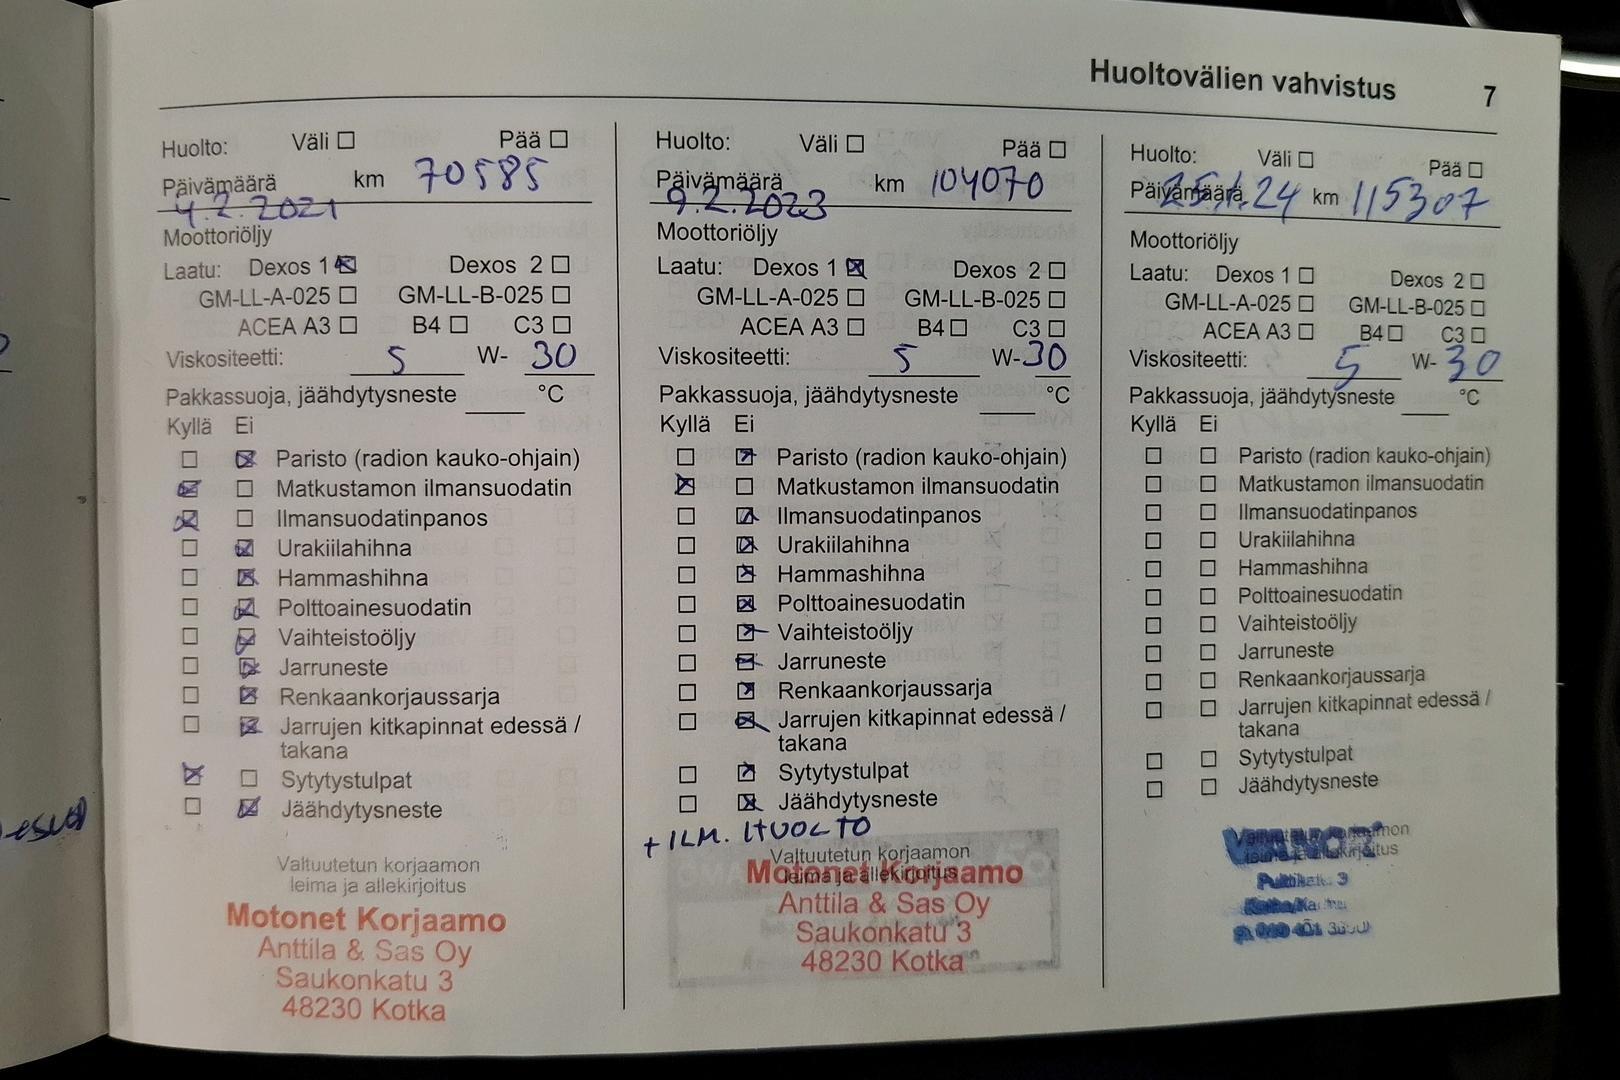 Huoltovälien vahvistus 7
Huolto: Väli ☐ Pää ☐
Päivämäärä km 70585
4.2.2021
Moottoriöljy
Laatu: Dexos 1 ☒ Dexos 2 ☐
GM-LL-A-025 ☐ GM-LL-B-025 ☐
ACEA A3 ☐ B4 ☐ C3 ☐
Viskositeetti: 5 W- 30
Pakkassuoja, jäähdytysneste ____ °C
Kyllä Ei
☐ ☒ Paristo (radion kauko-ohjain)
☒ ☐ Matkustamon ilmansuodatin
☒ ☐ Ilmansuodatinpanos
☐ ☒ Urakiilahihna
☐ ☒ Hammashihna
☐ ☒ Polttoainesuodatin
☐ ☒ Vaihteistoöljy
☐ ☒ Jarruneste
☐ ☒ Renkaankorjaussarja
☐ ☒ Jarrujen kitkapinnat edessä /
takana
☒ ☐ Sytytystulpat
☐ ☒ Jäähdytysneste
Valtuutetun korjaamon
leima ja allekirjoitus
Motonet Korjaamo
Anttila & Sas Oy
Saukonkatu 3
48230 Kotka
Huolto: Väli ☐ Pää ☐
Päivämäärä km 104070
9.2.2023
Moottoriöljy
Laatu: Dexos 1 ☒ Dexos 2 ☐
GM-LL-A-025 ☐ GM-LL-B-025 ☐
ACEA A3 ☐ B4 ☐ C3 ☐
Viskositeetti: 5 W- 30
Pakkassuoja, jäähdytysneste ____ °C
Kyllä Ei
☐ ☒ Paristo (radion kauko-ohjain)
☒ ☐ Matkustamon ilmansuodatin
☐ ☒ Ilmansuodatinpanos
☐ ☒ Urakiilahihna
☐ ☒ Hammashihna
☐ ☒ Polttoainesuodatin
☐ ☒ Vaihteistoöljy
☐ ☒ Jarruneste
☐ ☒ Renkaankorjaussarja
☐ ☒ Jarrujen kitkapinnat edessä /
takana
☐ ☒ Sytytystulpat
☐ ☒ Jäähdytysneste
+ ILM. HUOLTO
Valtuutetun korjaamon
leima ja allekirjoitus
Motonet Korjaamo
Anttila & Sas Oy
Saukonkatu 3
48230 Kotka
Huolto: Väli ☐ Pää ☐
Päivämäärä 25.1.24 km 115307
Moottoriöljy
Laatu: Dexos 1 ☐ Dexos 2 ☐
GM-LL-A-025 ☐ GM-LL-B-025 ☐
ACEA A3 ☐ B4 ☐ C3 ☐
Viskositeetti: 5 W- 30
Pakkassuoja, jäähdytysneste ____ °C
Kyllä Ei
☐ ☐ Paristo (radion kauko-ohjain)
☐ ☐ Matkustamon ilmansuodatin
☐ ☐ Ilmansuodatinpanos
☐ ☐ Urakiilahihna
☐ ☐ Hammashihna
☐ ☐ Polttoainesuodatin
☐ ☐ Vaihteistoöljy
☐ ☐ Jarruneste
☐ ☐ Renkaankorjaussarja
☐ ☐ Jarrujen kitkapinnat edessä /
takana
☐ ☐ Sytytystulpat
☐ ☐ Jäähdytysneste
Valtuutetun korjaamon
leima ja allekirjoitus